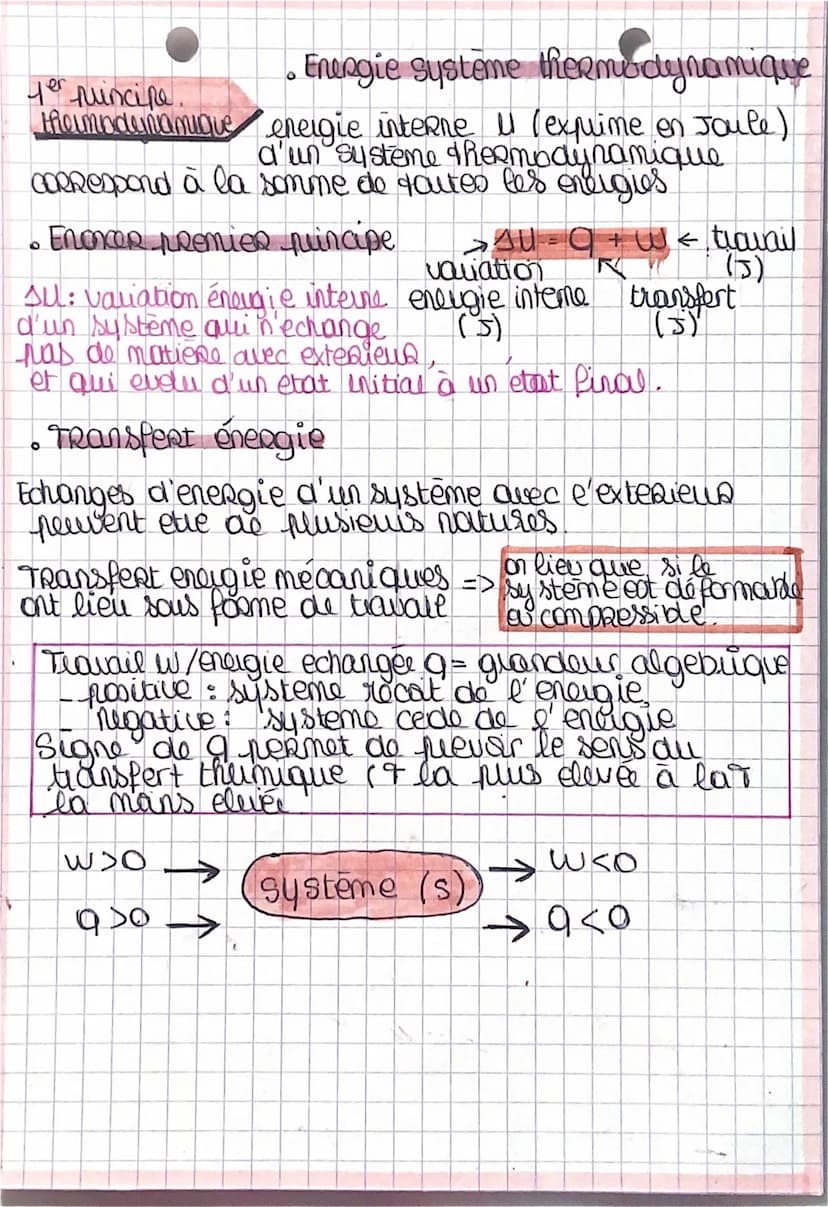 . Energie système thermodynamique
1er principe.
thermodynamique
energie interne U (exprime en Joule)
d'un système thermodynamique
correspond à la somme de toutes les energies
. Enoncer premier principe
→ ΔU = Q + W ← travail
(J)
variation
energie interne
(J)
transfert
(J)
ΔU: variation énergie interne
d'un système qui n'echange
pas de matière avec exterieur,
et qui evolu d'un etat initial à un état final.
. Transfert énergie
Echanges d'energie d'un système avec l'exterieur
peuvent etre de plusieurs natures.
Transfert energie mécaniques =>
ont lieu sous forme de travail
on lieu que si le
système est déformable
ou compressible.
Travail W/energie echangée Q = grandeur algebrique
- positive : système recoit de l'energie,
- negative : système cede de l'energie
Signe de Q permet de prevoir le sens du
transfert thermique (T la plus elevée à la T
la moins elevée
W>0 → système (s) → W<0
Q>0 → → Q<0